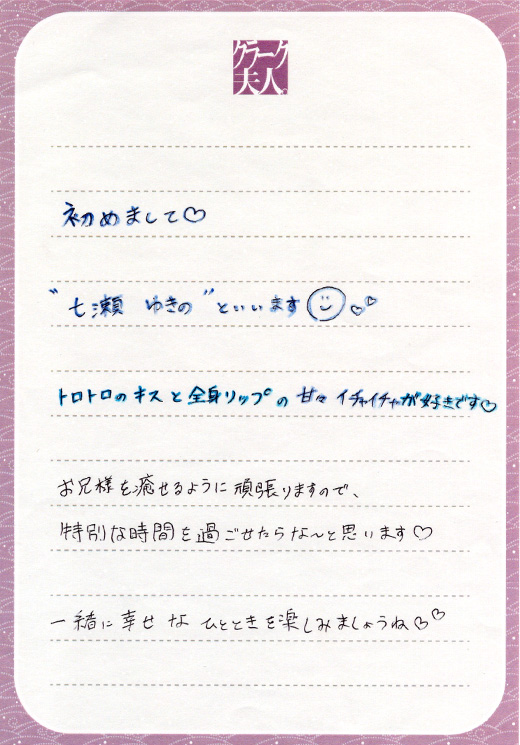 クラーク
夫人。
初めまして♡
"七瀬 ゆきの"といいます☺♡♡
トロトロのキスと全身リップの甘々イチャイチャが好きです♡
お兄様を癒せるように頑張りますので、
特別な時間を過ごせたらなんと思います♡
一緒に幸せなひとときを楽しみましょうね♡♡